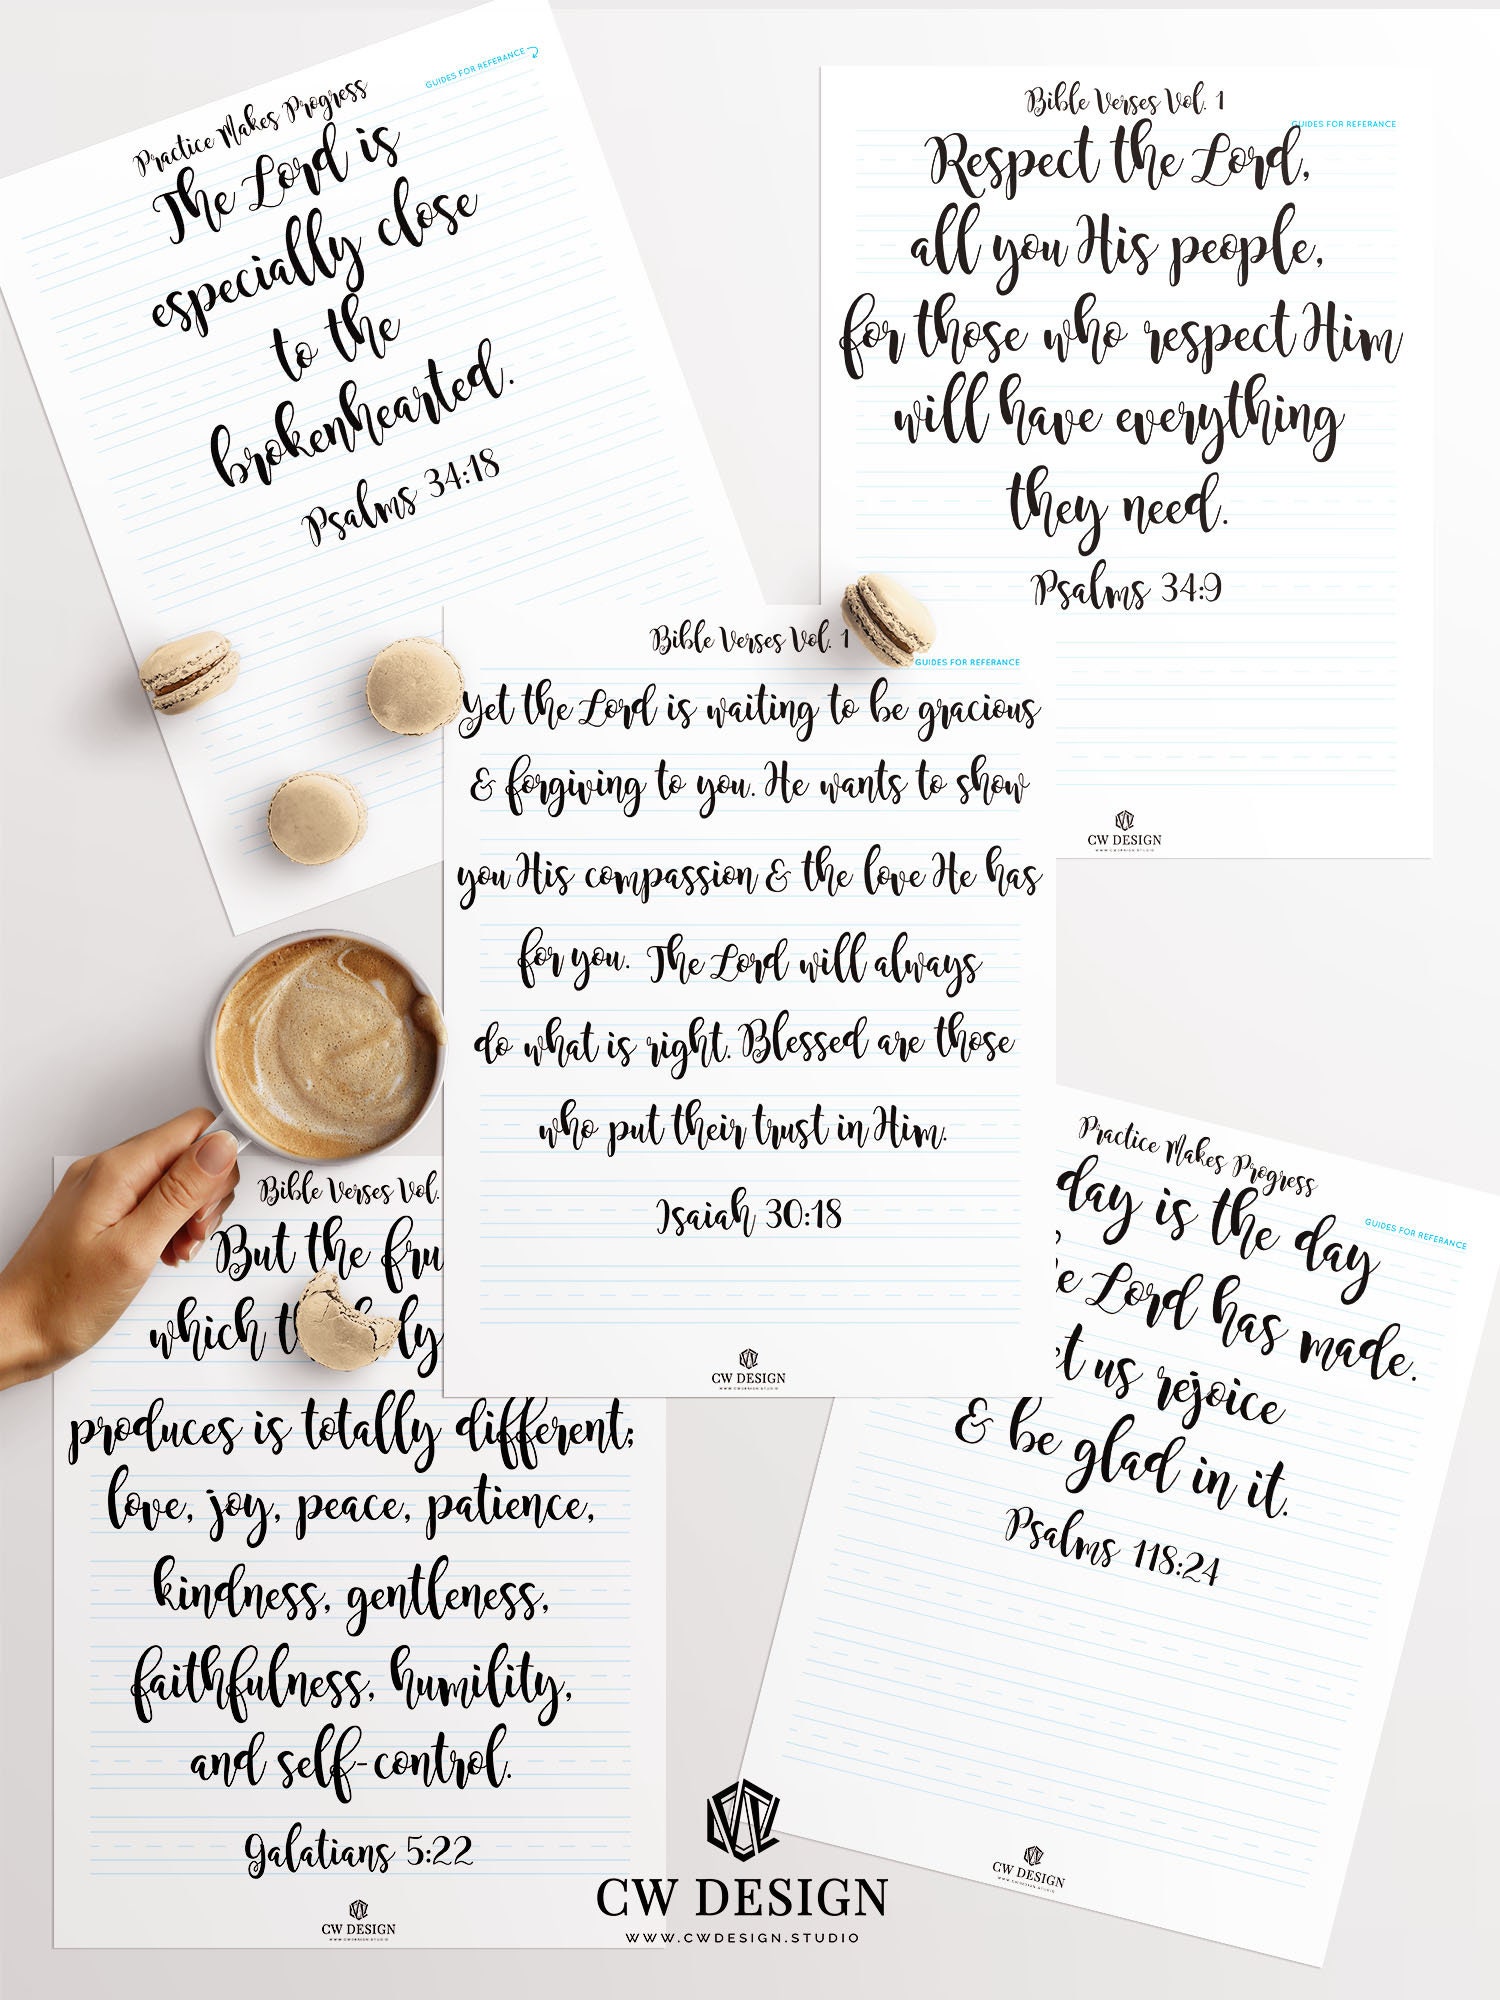 Practice Makes Progress
GUIDES FOR REFERANCE
The Lord is
especially close
to the
brokenhearted.
Psalms 34:18
Bible Verses Vol. 1
GUIDES FOR REFERANCE
Respect the Lord,
all you His people,
for those who respect Him
will have everything
they need.
Psalms 34:9
CW DESIGN
WWW.CWDESIGN.STUDIO
Bible Verses Vol. 1
GUIDES FOR REFERANCE
Yet the Lord is waiting to be gracious
& forgiving to you. He wants to show
you His compassion & the love He has
for you. The Lord will always
do what is right. Blessed are those
who put their trust in Him.
Isaiah 30:18
CW DESIGN
WWW.CWDESIGN.STUDIO
Bible Verses Vol.
But the
which
produces is totally different;
love, joy, peace, patience,
kindness, gentleness,
faithfulness, humility,
and self-control.
Galatians 5:22
CW DESIGN
WWW.CWDESIGN.STUDIO
Practice Makes Progress
GUIDES FOR REFERANCE
day is the day
Lord has made.
us rejoice
& be glad in it.
Psalms 118:24
CW DESIGN
WWW.CWDESIGN.STUDIO
CW DESIGN
WWW.CWDESIGN.STUDIO